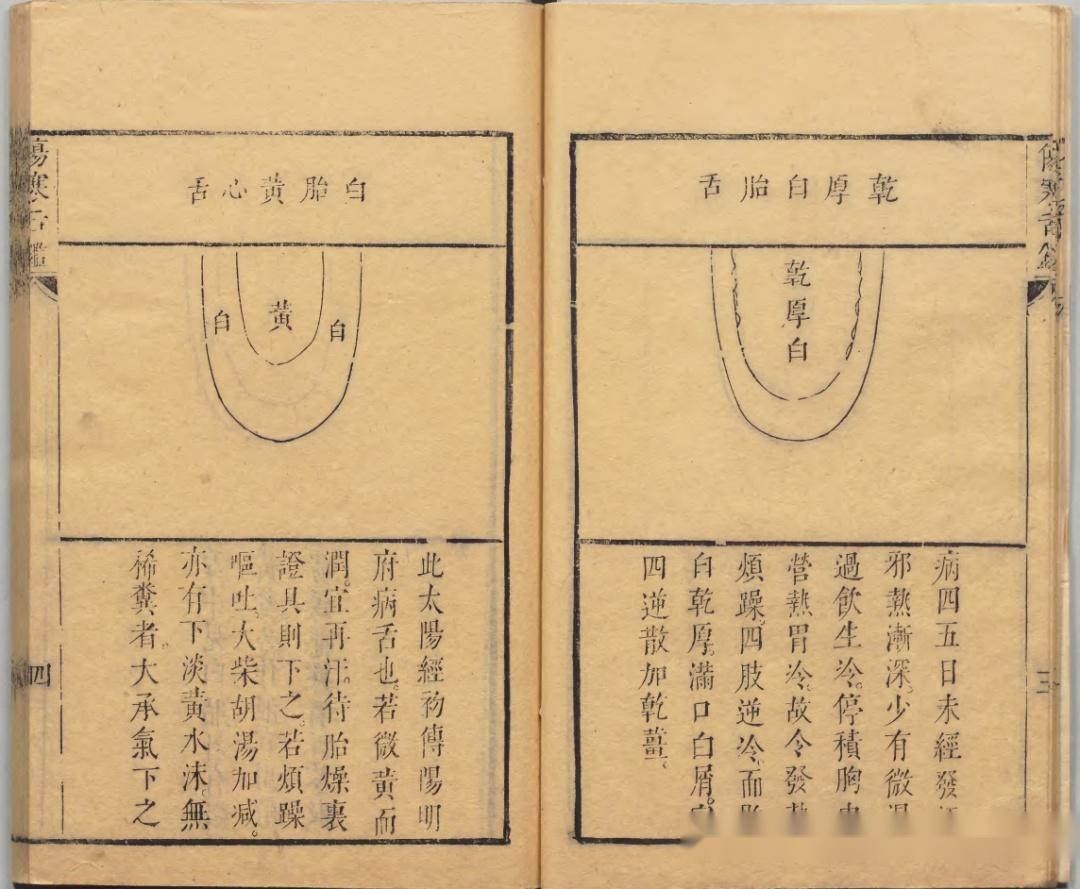 傷寒舌鑑
三
乾厚白胎舌
乾厚白
病四五日未經發
邪熱漸深。少有微
過飲生冷。停積胸
營熱胃冷。故令發
煩躁。四肢逆冷。而
白乾厚。滿口白屑。
四逆散加乾薑。
白胎黃心舌
白
黃
白
此太陽經初傳陽明
府病舌也。若微黃而
潤。宜再汗。待胎燥裏
證具則下之。若煩躁
嘔吐。大柴胡湯加減。
亦有下淡黃水沫。無
稀糞者。大承氣下之
傷寒舌鑑
四